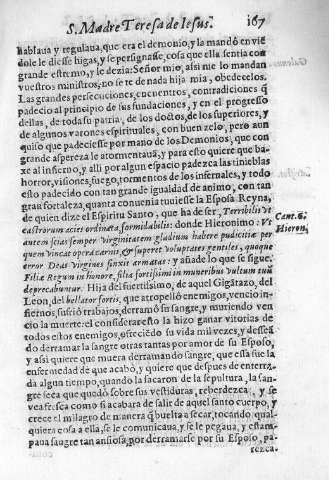 S. Madre Teresa de Iesus. 167
hablaua y regulaua, que era el demonio, y la mandò en viẽ
dole le diesse higas, y se persignasse, cosa que ella sentia con
grande estremo, y le dezia: Señor mio, assi me lo mandan
vuestros ministros, no se te de nada hija mia, obedecelos.
Las grandes persecuciones, encuentros, contradiciones q̃
padecio al principio de sus fundaciones, y en el progresso
dellas, de toda su patria, de los doctos, de los superiores, y
de algunos varones espirituales, con buen zelo, pero aun
quiso que padeciesse por mano de los Demonios, que con
grande aspereza le atormentauã, y para esto quiere que ba-
xe al infierno, y alli por algun espacio padezca las tinieblas
horror, visiones, fuego, tormentos de los infernales, y todo
esto padecido con tan grande igualdad de animo, con tan
gran fortaleza, quanta conuenia tuuiesse la Esposa, Reyna,
de quien dize el Espiritu Santo, que ha de ser, Terribilis vt
castrorum acies ordinata, formidabilis: donde Hieronimo: Vt
Cant. 6.
Hieron.
autem scias semper virginitatem gladium habere pudicitiæ per
quem vincat opera carnis, & superet voluptates gentiles, quoque
error Deas virgines finxit armatas: y añade lo que se sigue.
Filia Regum in honore, filia fortissimi in muneribus vultum tuũ
deprecabuntur. Hija del fuertissimo, de aquel Gigãtazo, del
Leon, del bellator fortis, que atropellò enemigos, vencio in-
fiernos, sufrio trabajos, derramò su sangre, y muriendo ven
cio la muerte: el considerar esto la hizo ganar vitorias de
todos estos enemigos, ofreciẽdo su vida mil vezes, y dessea
do derramar la sangre otras tantas por amor de su Esposo,
y assi quiere que muera derramando sangre, que essa fue la
enfermedad de que acabò, y quiere que despues de enterra-
da algun tiempo, quando la sacaron de la sepultura, la san-
gre seca que quedò sobre sus vestiduras, reberdezca, y se
vea fresca como si acabara de salir de aquel santo cuerpo, y
crece el milagro de manera q̃ buelta a secar, tocando qual-
quiera cosa a ella, se le comunicaua, y se le pegaua, y estam-
paua sangre tan ansiosa, por derramarse por su Esposo, pa-
rezca-